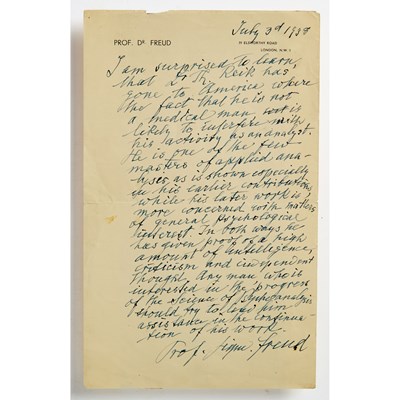 July 3d 1938
PROF. DR FREUD
39 ELSWORTHY ROAD
LONDON, N.W. 3
I am surprised to learn
that Dr Th. Reik has
gone to America where
the fact that he is not
a medical man is
likely to interfere with
his activity as analyst.
He is one of the few
masters of applied ana-
lysis as is shown especially
in his earlier contributions,
while his later work is
more concerned with matters
of general psychological
interest. In both ways he
has given proof of a high
amount of intelligence,
criticism and independent
thought. Any man who is
interested in the progress
of the science of Psychoanalysis
should try to lend him
assistance in the continua-
tion of his work.
Prof. Sigm. Freud